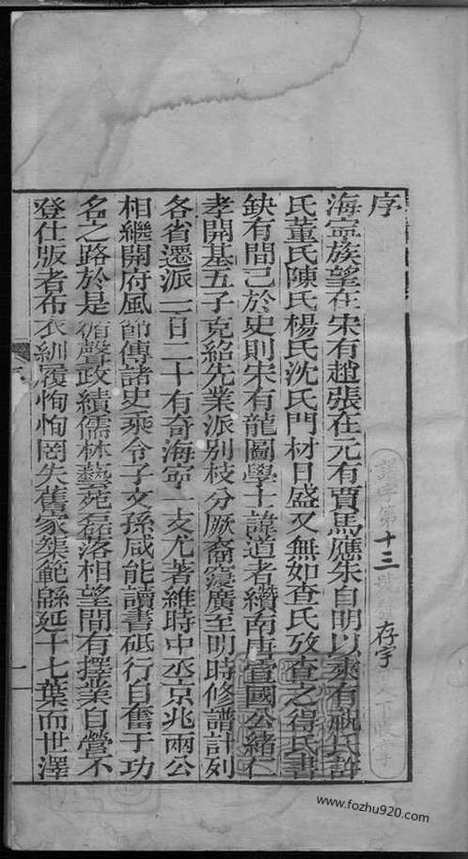 序
海寧族望在宋有趙張在元有賈馬應朱自明以來有祝氏許
氏董氏陳氏楊氏沈氏門材日盛又無如查氏攷查之得氏書
缺有間己於史則宋有龍圖學士諱道者纘南唐宣國公緒仁
孝開基五子克紹先業派別枝分厥裔寖廣至明時修譜計列
各省遷派一百二十有奇海寧一支尤著維時中丞京兆兩公
相繼開府風節傳諸史乘令子文孫咸能讀書砥行自奮于功
名之路於是循聲政績儒林藝苑磊落相望間有擇業自營不
登仕版者布衣紃履恂恂罔失舊家榘範緜延十七葉而世澤
譜字第十三號
存字
www.fozhu920.com